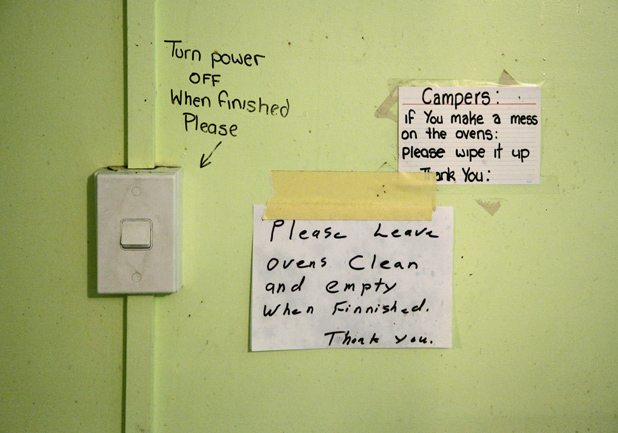 Turn power
OFF
When finished
Please
Campers:
if You make a mess
on the ovens:
Please wipe it up
Thank You:
Please Leave
ovens Clean
and empty
When Finnished.
Thank you.